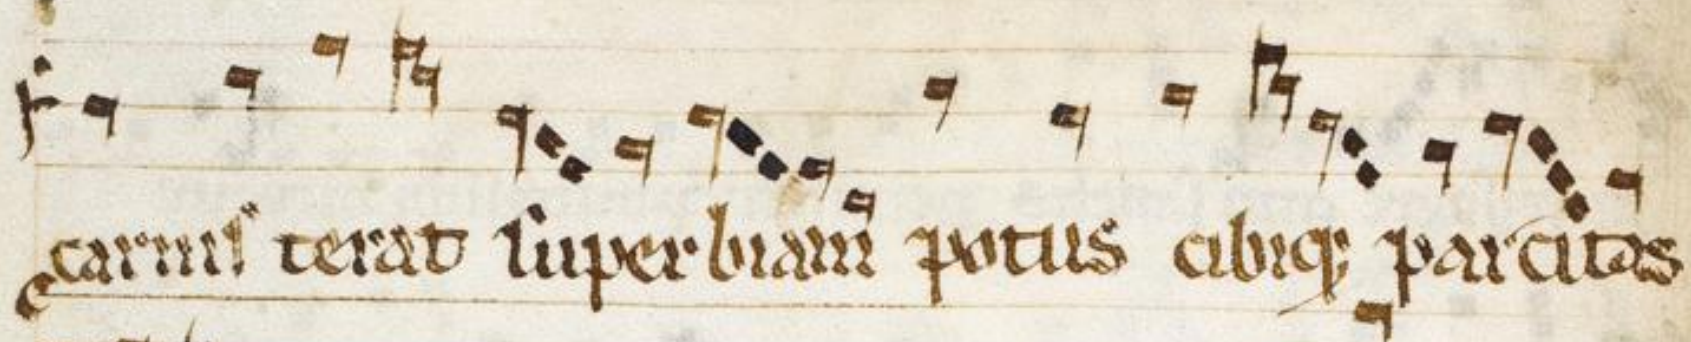 carnis terat superbiam potus cibiqꝫ parcitas